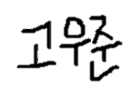 고우준